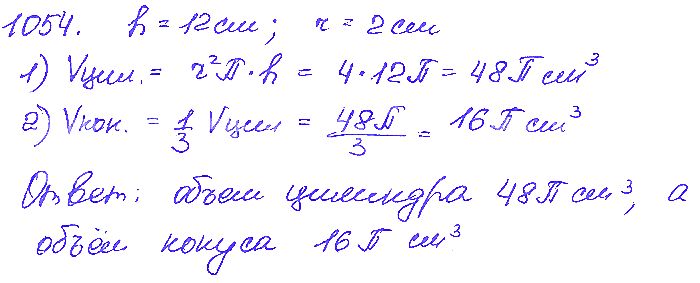 1054. h = 12см; r = 2см
1) Vцил. = r²П·h = 4·12П = 48П см³
2) Vкон. = 1/3 Vцил = 48П/3 = 16П см³
Ответ: объем цилиндра 48П см³, а
объём конуса 16П см³